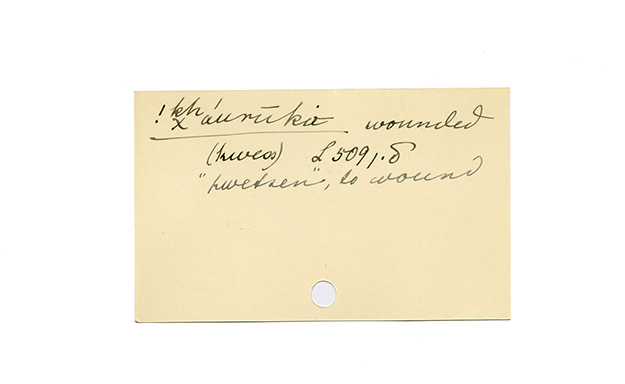 ! kh χ'aurūka wounded
(kwess) L 5091.δ
"kwetsen", to wound